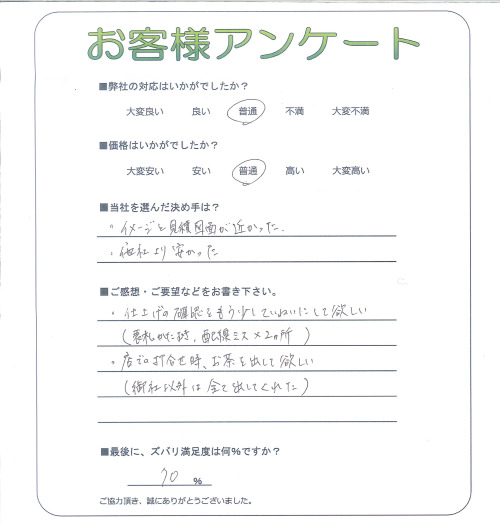 お客様アンケート
■弊社の対応はいかがでしたか？
大変良い 良い 普通 不満 大変不満
■価格はいかがでしたか？
大変安い 安い 普通 高い 大変高い
■当社を選んだ決め手は？
・イメージと見積図面が近かった.
・他社より安かった
■ご感想・ご要望などをお書き下さい。
・仕上げの確認をもう少していねいにして欲しい
(表札がたき，配線ミス×2ヵ所)
・店での打合せ時、お茶を出して欲しい
(御社以外は全て出してくれた)
■最後に、ズバリ満足度は何%ですか？
70 %
ご協力頂き、誠にありがとうございました。